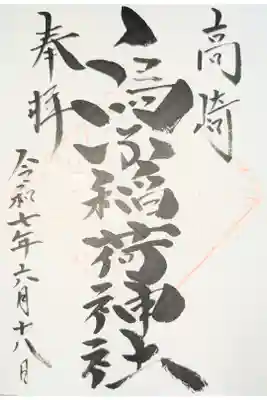 高崎
稲荷神社
奉拝
令和七年六月十八日